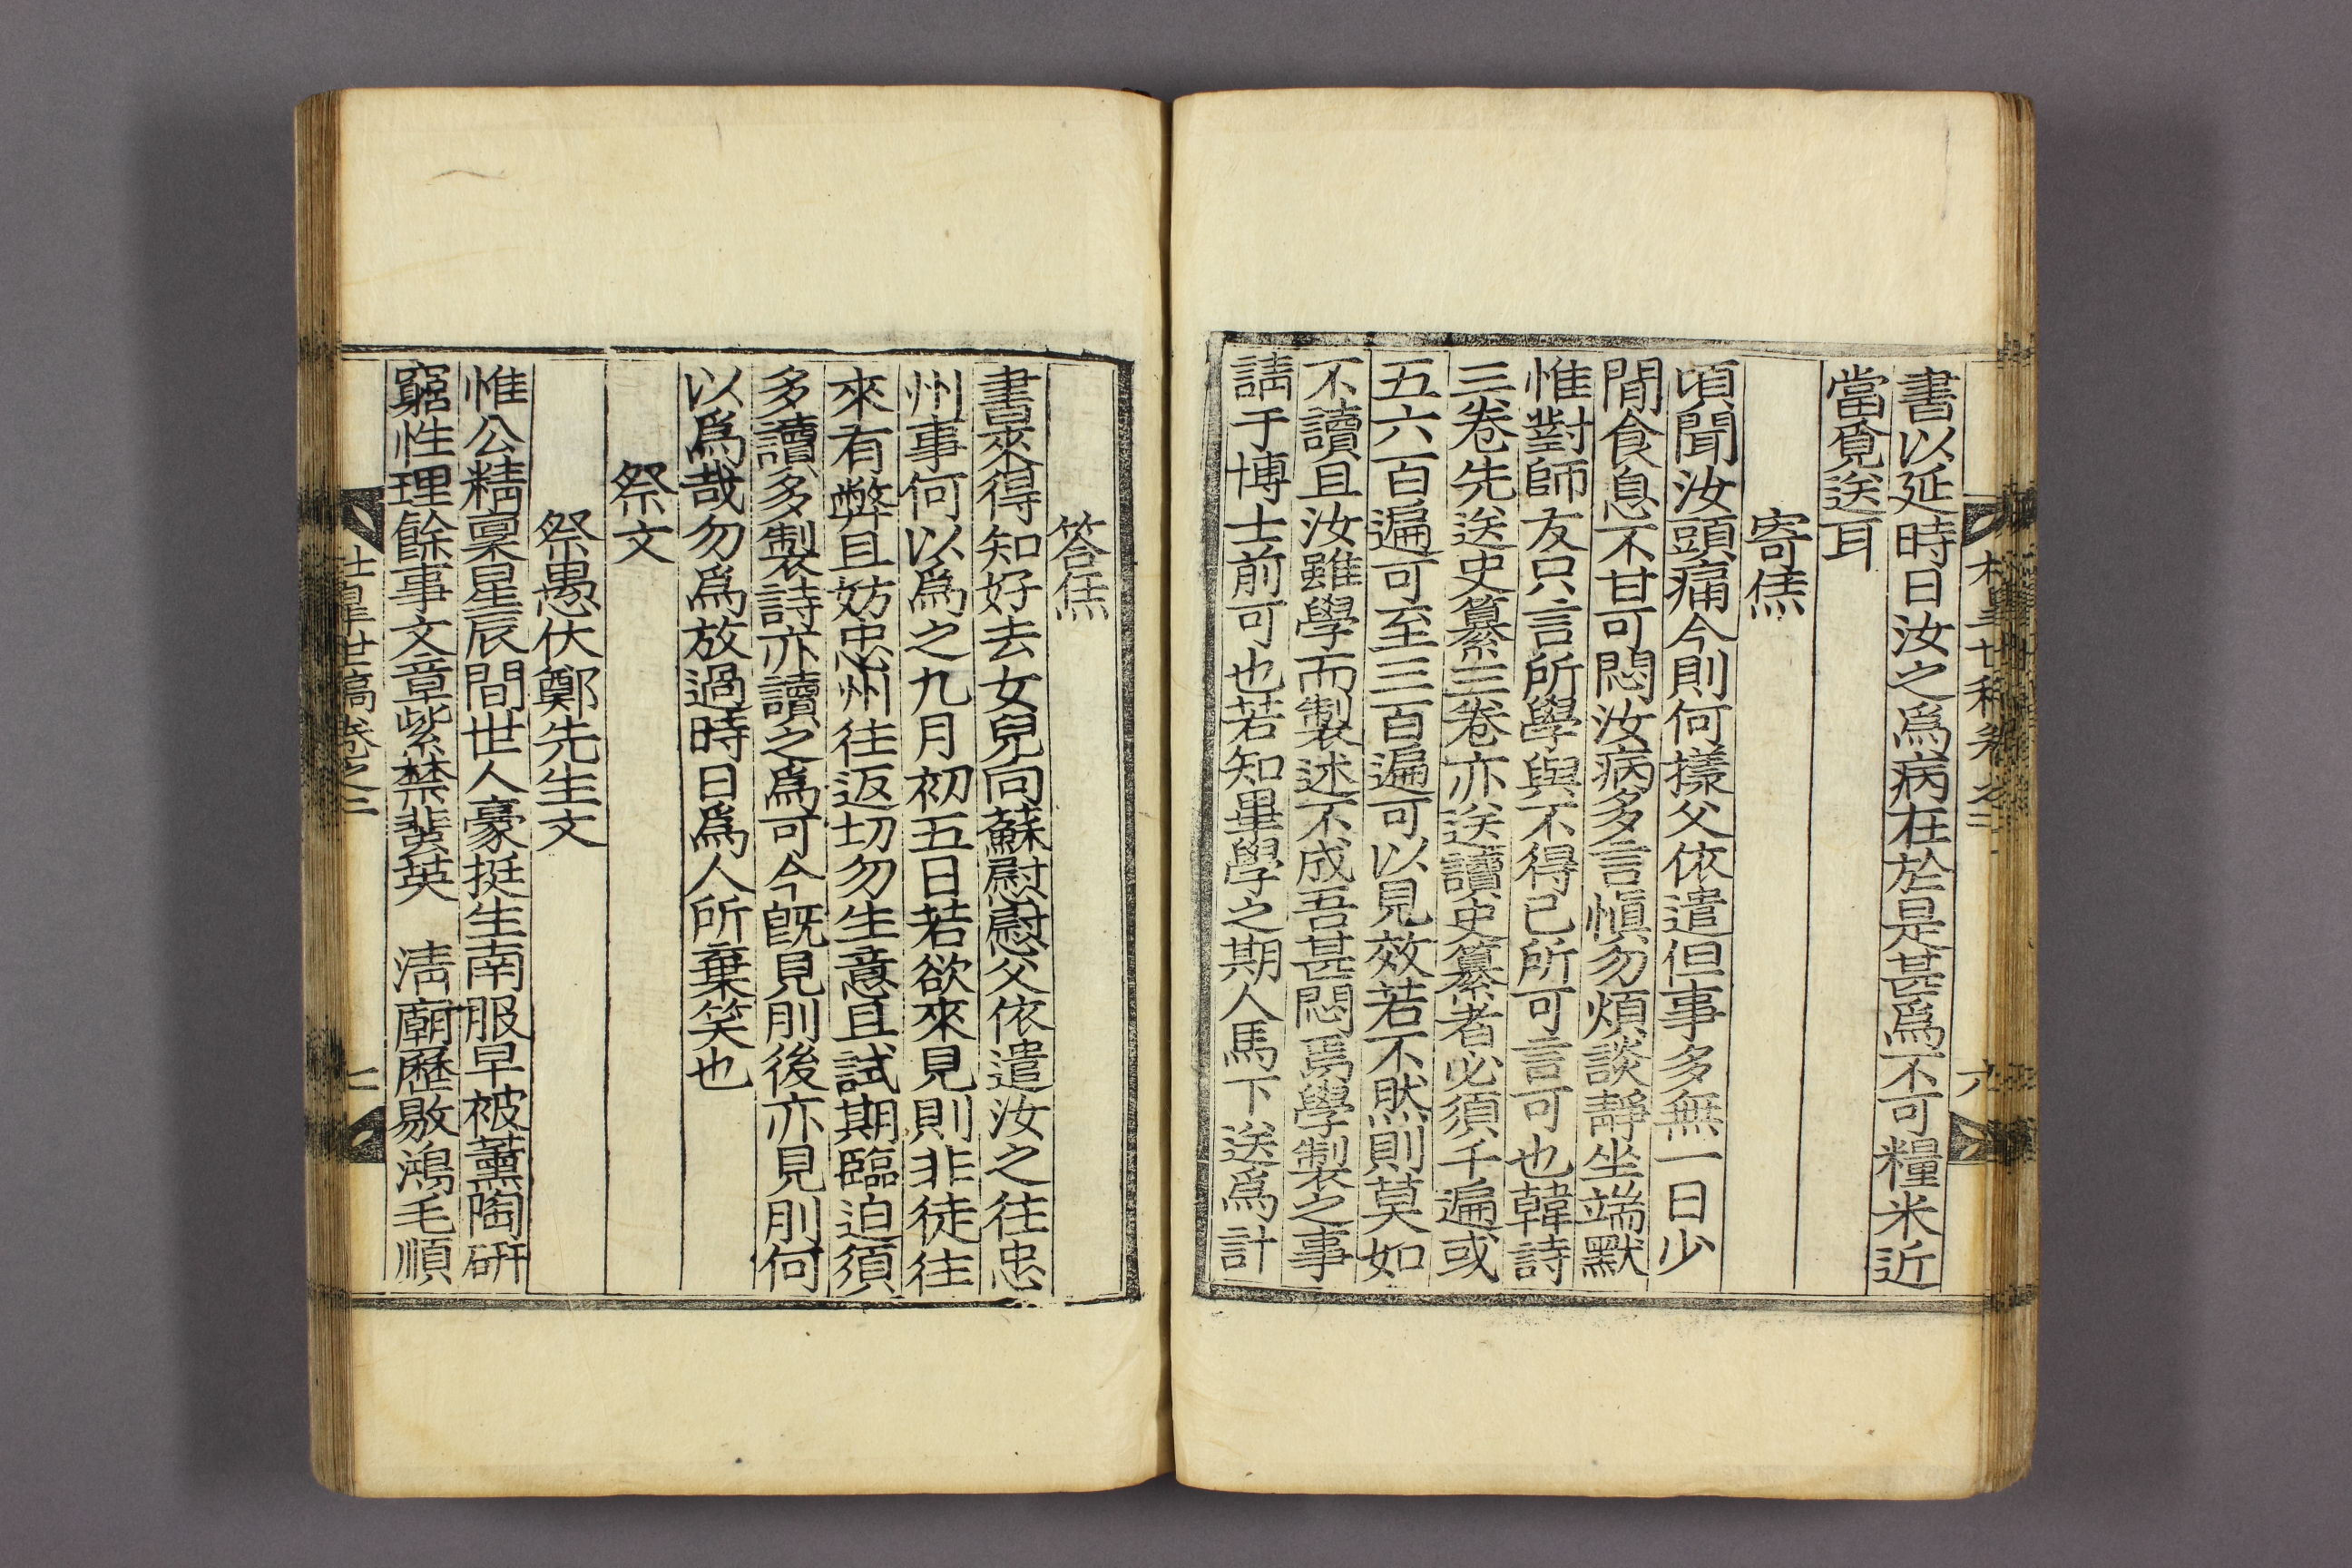 書以延時日汝之爲病在於是甚爲不可糧米近
當覓送耳
寄𤋱
頃聞汝頭痛今則何㨾父依遣但事多無一日少
閒食息不甘可悶汝病多言愼勿煩談靜坐端默
惟對師友只言所學與不得已所可言可也韓詩
三卷先送史纂三卷亦送讀史纂者必須千遍或
五六百遍可至三百遍可以見效若不然則莫如
不讀且汝雖學而製述不成吾甚悶焉學製之事
請于博士前可也若知畢學之期人馬下送爲計
答𤋱
書來得知好去女兒向蘇慰慰父依遣汝之往忠
州事何以爲之九月初五日若欲來見則非徒往
來有弊且妨忠州往返切勿生意且試期臨迫須
多讀多製詩亦讀之爲可今旣見刖後亦見刖何
以爲哉勿爲放過時日爲人所棄笑也
祭文
祭愚伏鄭先生文
惟公精稟星辰間世人豪挺生南服早被薰陶硏
窮性理餘事文章紫禁蜚英 淸廟歷敭鴻毛順
世稿卷之二